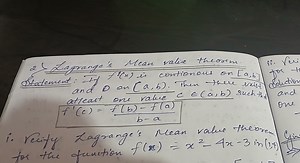 2) Lagrange's Mean value theorem
Statement: If f(x) is continous on [a,b]
and D on (a,b). Then there exist
atleast one value c ∈ (a,b) such that
f'(c) = f(b) - f(a)
b-a
1. Verify Lagrange's Mean value theorem
for the function f(x) = x² - 4x - 3 in